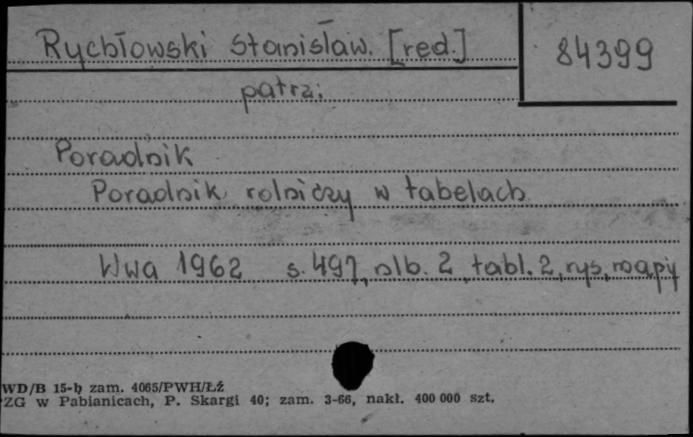 Rychłowski Stanisław. [red.]
84399
patrz:
Poradnik
Poradnik rolniczy w tabelach
Wwa 1962 s. 497, nlb. 2, tabl. 2, rys, mapy
WD/B 15-b zam. 4065/PWH/ŁŹ
ZG w Pabianicach, P. Skargi 40; zam. 3-66, nakł. 400 000 szt.